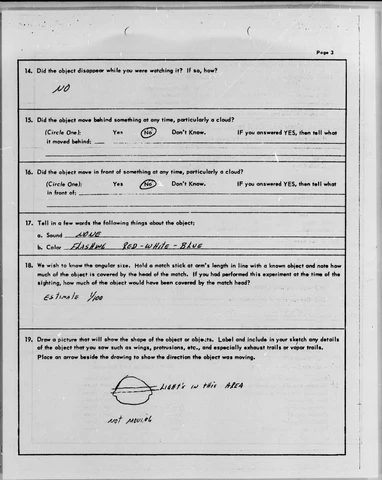 Page 3
14. Did the object disappear while you were watching it? If so, how?
NO
15. Did the object move behind something at any time, particularly a cloud?
(Circle One): Yes No Don't Know. IF you answered YES, then tell what
it moved behind:
16. Did the object move in front of something at any time, particularly a cloud?
(Circle One): Yes No Don't Know. IF you answered YES, then tell what
in front of:
17. Tell in a few words the following things about the object:
a. Sound NONE
b. Color FLASHING RED-WHITE-BLUE
18. We wish to know the angular size. Hold a match stick at arm's length in line with a known object and note how
much of the object is covered by the head of the match. If you had performed this experiment at the time of the
sighting, how much of the object would have been covered by the match head?
Estimate 1/100
19. Draw a picture that will show the shape of the object or objects. Label and include in your sketch any details
of the object that you saw such as wings, protrusions, etc., and especially exhaust trails or vapor trails.
Place an arrow beside the drawing to show the direction the object was moving.
LIGHT'S IN THIS AREA
NOT MOVING